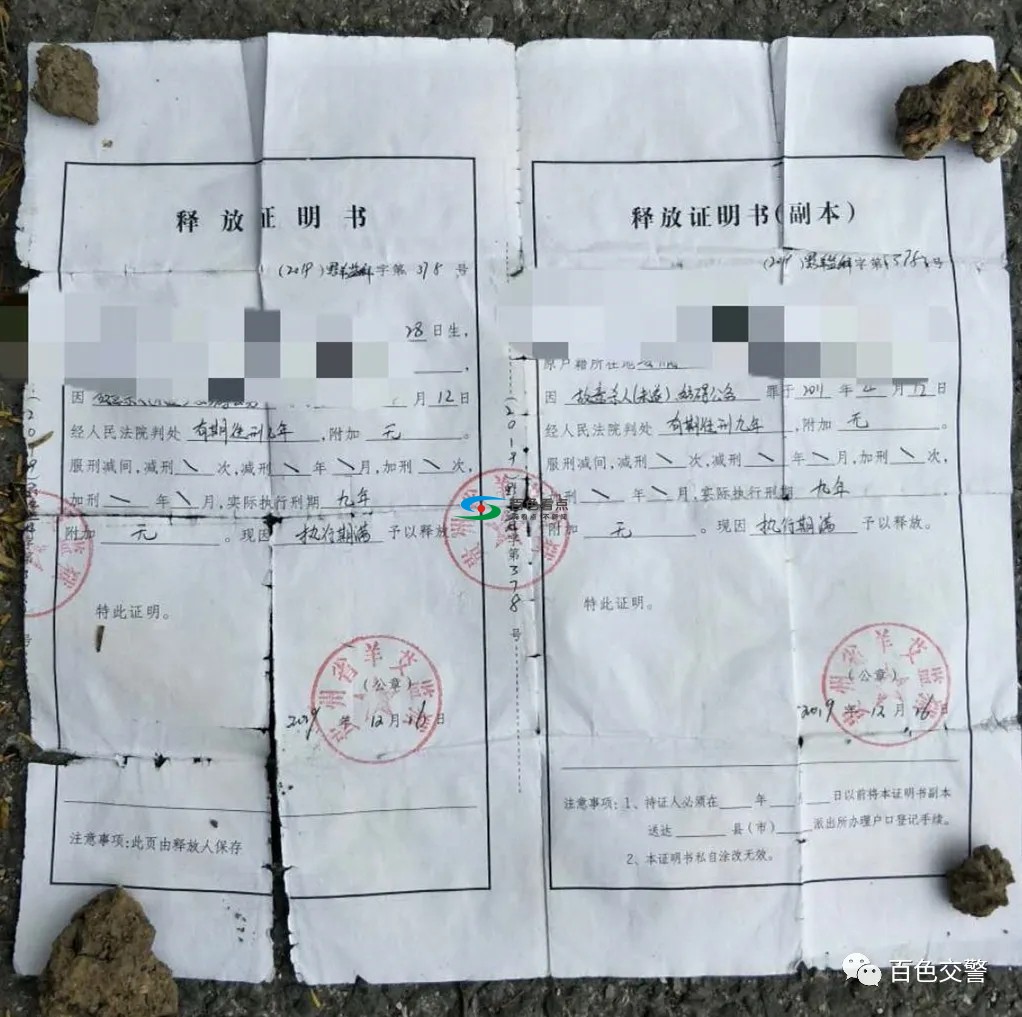 释放证明书
(2019)字第 378 号
28日生,
因
月12日
经人民法院判处 有期徒刑九年 ,附加 无 。
服刑减间,减刑 \ 次,减刑 \ 年 \ 月,加刑 \ 次,
加刑 \ 年 \ 月,实际执行刑期 九年
附加 无 。现因 执行期满 予以释放
特此证明。
贵州省羊艾监狱
(公章)
2019年12月16日
注意事项:此页由释放人保存
字第378号
释放证明书(副本)
(2019)字第378号
原户籍所在地
因 故意杀人(未遂)妨碍公务 罪于 2011 年 4 月 12 日
经人民法院判处 有期徒刑九年 ,附加 无 。
服刑减间,减刑 \ 次,减刑 \ 年 \ 月,加刑 \ 次,
加刑 \ 年 \ 月,实际执行刑期 九年
附加 无 。现因 执行期满 予以释放。
特此证明。
贵州省羊艾监狱
(公章)
2019年12月16日
注意事项:1、持证人必须在 年 日以前将本证明书副本
送达 县(市) 派出所办理户口登记手续。
2、本证明书私自涂改无效。
百色交警